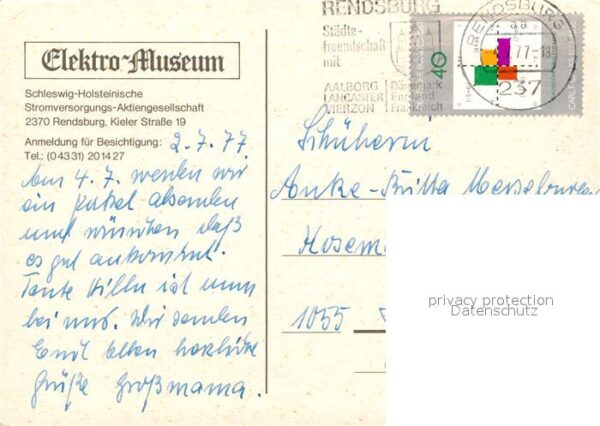 Elektro-Museum
Schleswig-Holsteinische
Stromversorgungs-Aktiengesellschaft
2370 Rendsburg, Kieler Straße 19
Anmeldung für Besichtigung:
Tel.: (04331) 201427
2.7.77.
Am 4.7. werden wir
ein Paket absenden
und wünschen daß
es gut ankommt.
Tante Hilla ist nun
bei uns. Wir senden
Euch allen herzliche
Grüße Großmama.
RENDSBURG
Städte-
freundschaft
mit
AALBORG Dänemark
LANCASTER England
VIERZON Frankreich
RENDSBURG
77.-13
237
40
Schülerin
Anke-Britta
Hosem
1055
privacy protection
Datenschutz